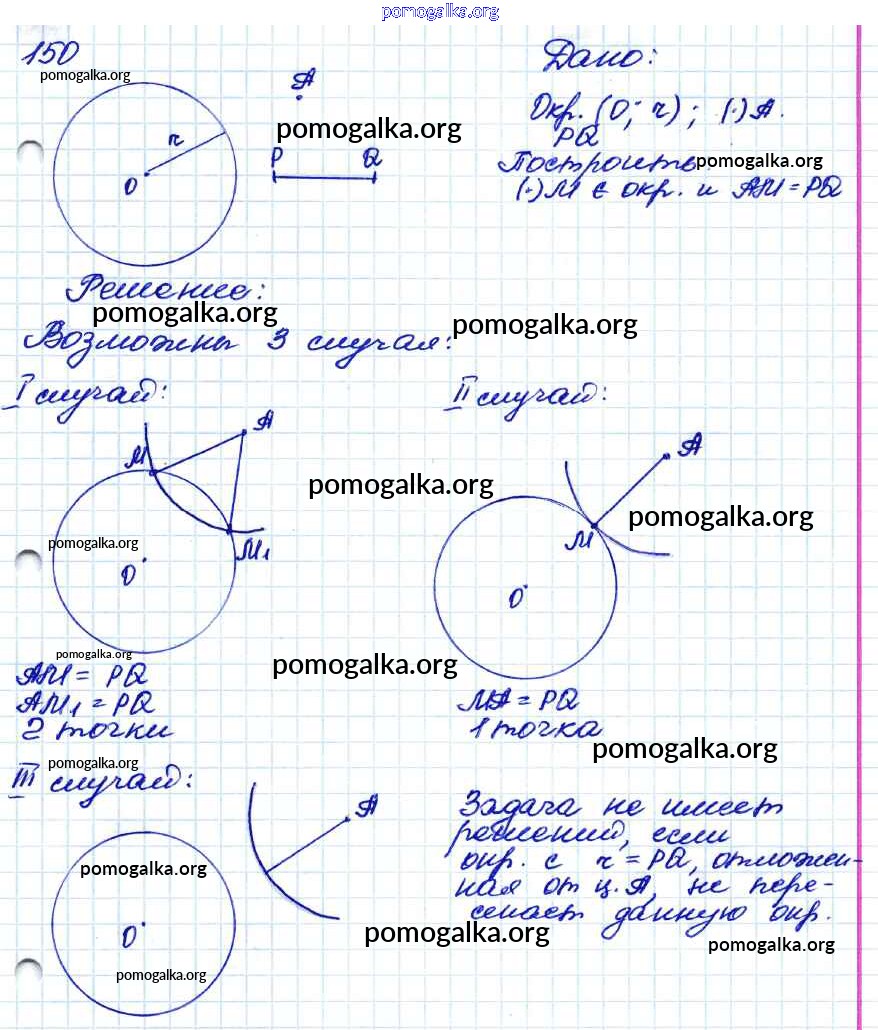 pomogalka.org
150
pomogalka.org
r
O
A
pomogalka.org
P Q
Дано:
Окр. (O; r); (·) A.
PQ
Построить
pomogalka.org
(·) M ∈ окр. и AM = PQ
Решение:
pomogalka.org
Возможны 3 случая:
pomogalka.org
I случай:
A
M
M₁
O
pomogalka.org
pomogalka.org
AM = PQ
AM₁ = PQ
2 точки
pomogalka.org
pomogalka.org
II случай:
A
M
O
pomogalka.org
MA = PQ
1 точка
pomogalka.org
pomogalka.org
III случай:
A
O
pomogalka.org
pomogalka.org
Задача не имеет
решений, если
окр. с r = PQ, отложен-
ная от ц. A, не пере-
секает данную окр.
pomogalka.org
pomogalka.org